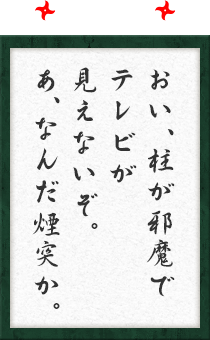 おい、柱が邪魔で
テレビが
見えないぞ。
あ、なんだ煙突か。